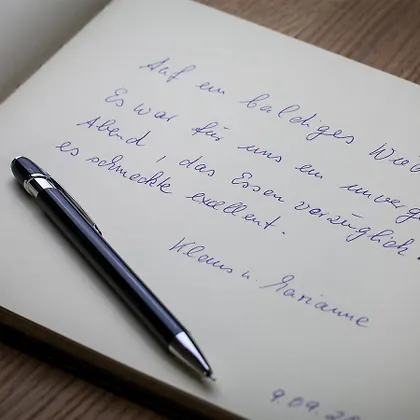 Auf ein baldiges
Es war für uns ein
Abend, das Essen vorzüglich.
es schmeckte exellent.
Klaus u. Marianne
9.09.20